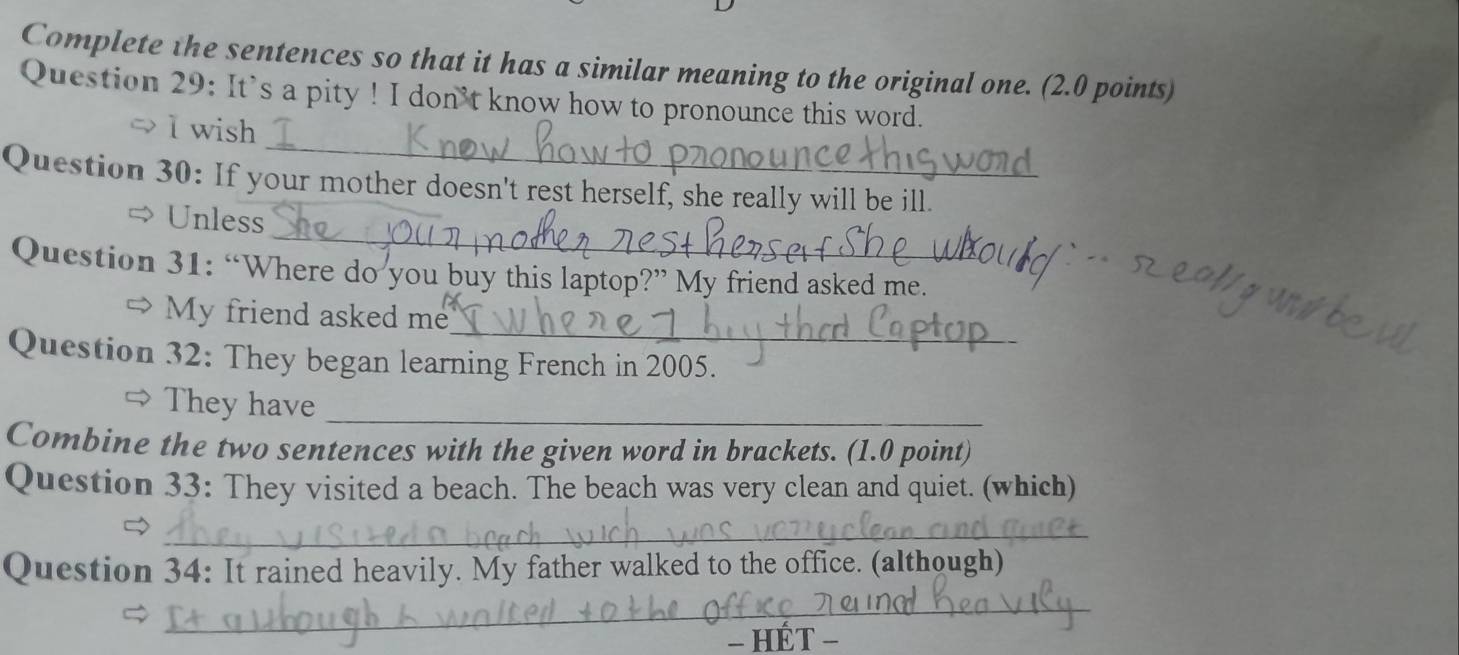 Complete the sentences so that it has a similar meaning to the original one. (2.0 points)
Question 29: It's a pity ! I don't know how to pronounce this word.
⇨ I wish I Know how to pronounce this word
Question 30: If your mother doesn't rest herself, she really will be ill.
⇨ Unless She your mother rest herself She would really
Question 31: “Where do you buy this laptop?” My friend asked me.
⇨ My friend asked me where I buy that laptop
Question 32: They began learning French in 2005.
⇨ They have
Combine the two sentences with the given word in brackets. (1.0 point)
Question 33: They visited a beach. The beach was very clean and quiet. (which)
⇨ They visited a beach wich was very clean and quiet
Question 34: It rained heavily. My father walked to the office. (although)
⇨ It although h walked to the office raind heavily
– HẾT –